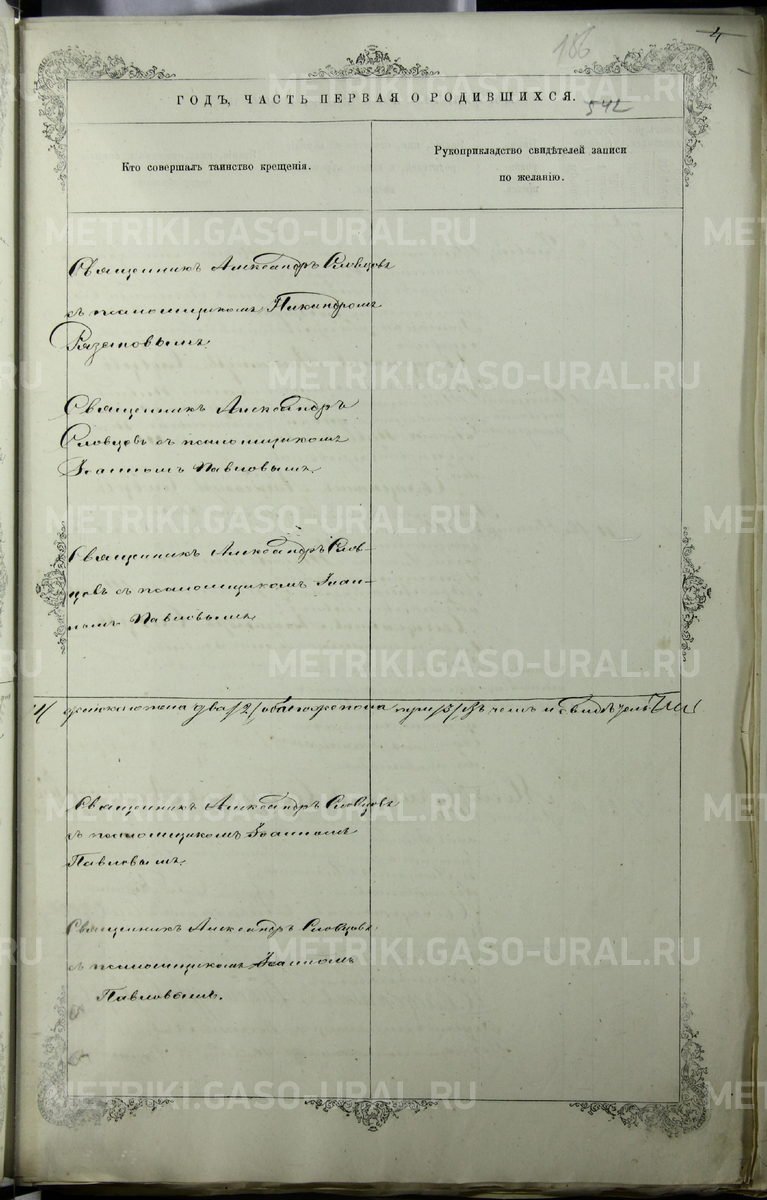 186
4
ГОДЪ, ЧАСТЬ ПЕРВАЯ О РОДИВШИХСЯ.
542
Кто совершалъ таинство крещенія.
Рукоприкладство свидѣтелей записи
по желанію.
Священникъ Александръ Словцовъ
съ псаломщикомъ Никандромъ
Священникъ Александръ
Словцовъ съ псаломщикомъ
Іоанномъ Павловымъ.
Священникъ Александръ Слов-
цовъ съ псаломщикомъ Іоан-
номъ Павловымъ.
женска пола два /2/ обоего пола три /3/ въ чемъ и свидѣтель
Священникъ Александръ Словцовъ
съ псаломщикомъ Іоанномъ
Павловымъ.
Священникъ Александръ Словцовъ
съ псаломщикомъ Іоанномъ
Павловымъ.
METRIKI.GASO-URAL.RU